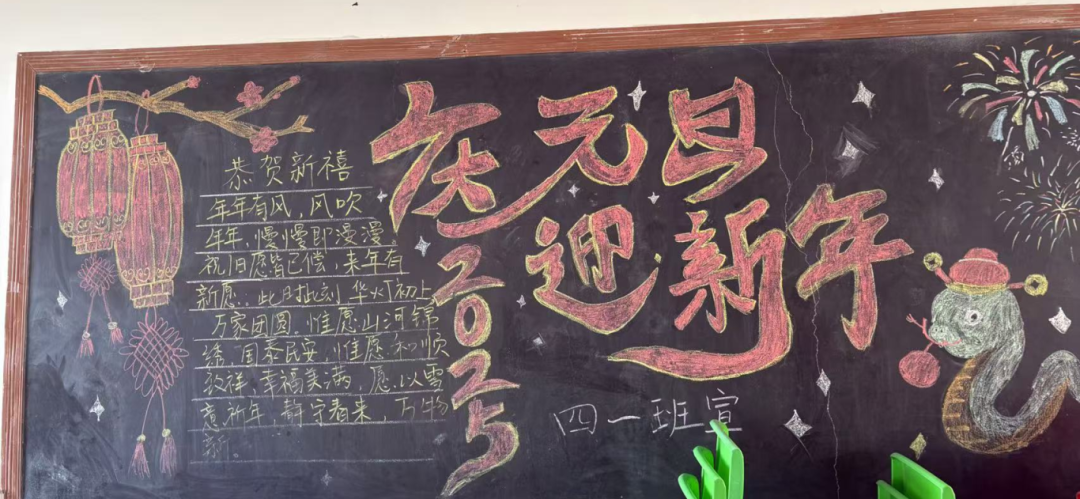 庆元旦
迎新年
2025
恭贺新禧
年年有风，风吹
年年，慢慢即漫漫。
祝旧愿皆已偿，来年有
新愿.此时此刻，华灯初上
万家团圆，惟愿山河锦
绣，国泰民安，惟愿和顺
致祥，幸福美满，愿以雪
意祈年，静守春来，万物
新。
四一班宣